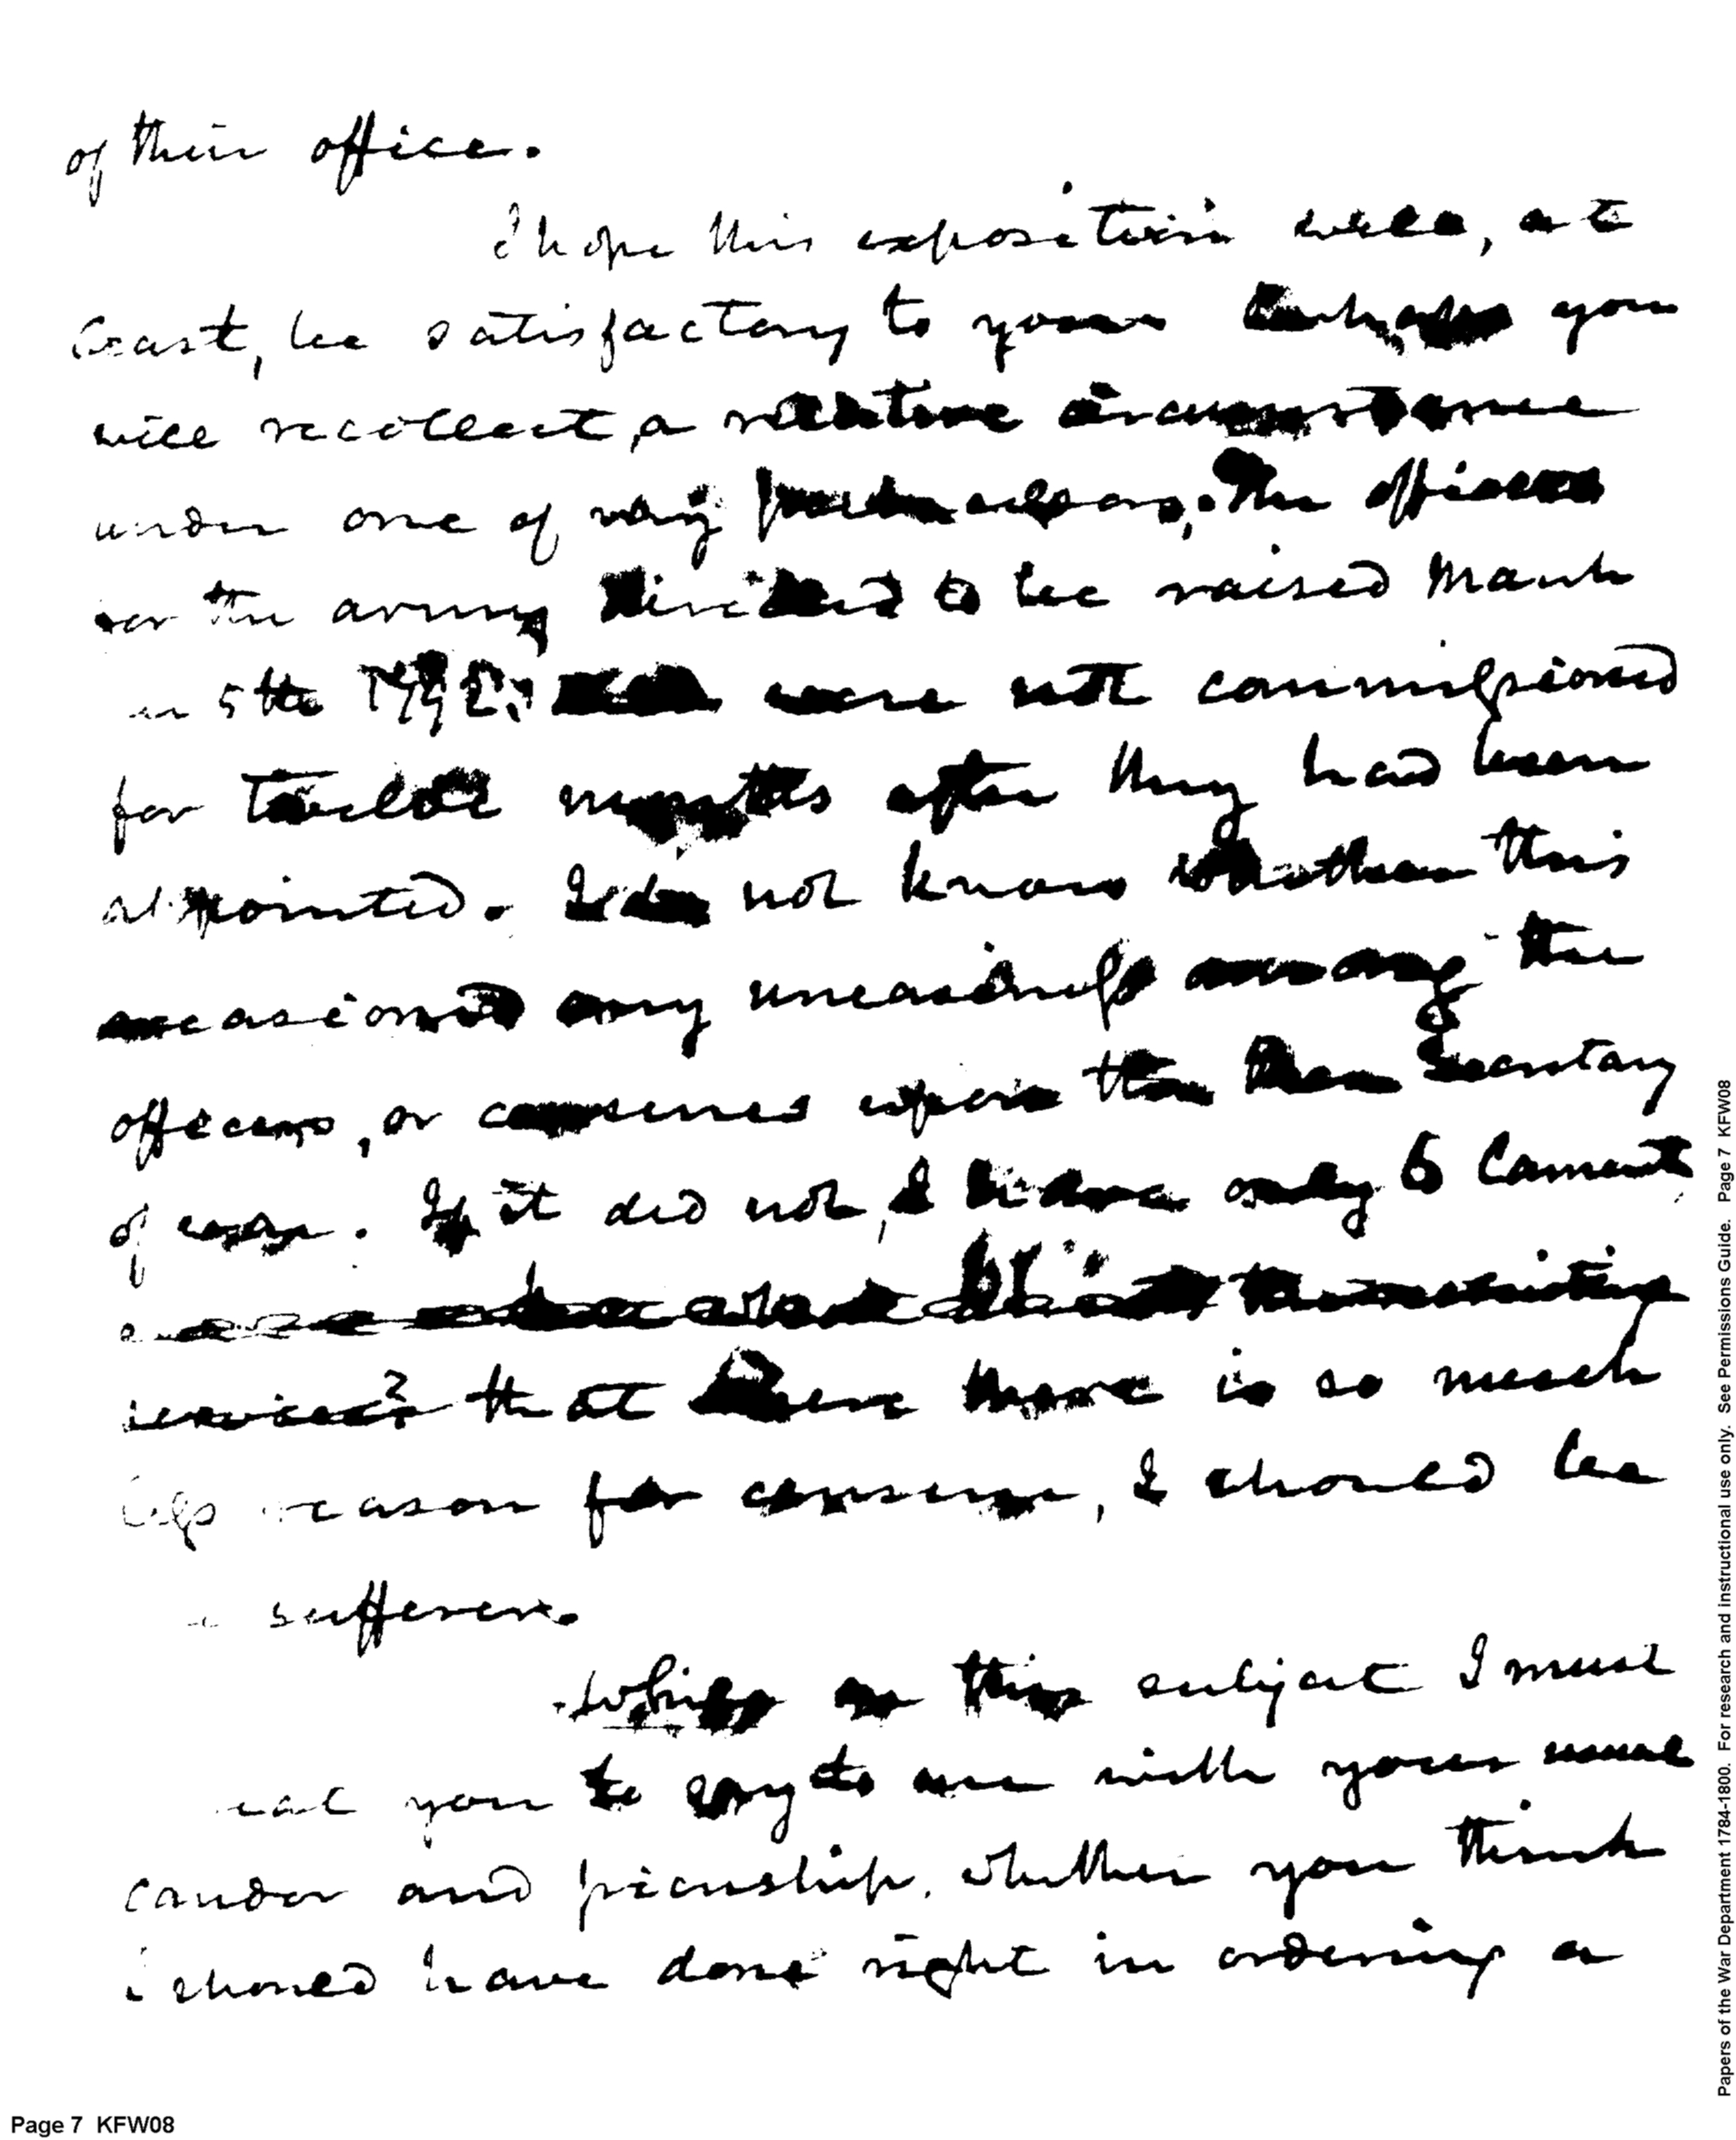 of their office.
I hope this exposition will, at
least, be satisfactory to you. Perhaps you
will recollect, a relative circumstance
under one of my predecessors. The officers
for the army directed to be raised March
5th 1792, were not commissioned
for twelve months after they had been
appointed. I do not know whether this
occasioned any uneasiness among the
officers, or censures upon the then Secretary
of war. If it did not, I have only to lament,
that where there is so much
less reason for censure, I should be
a sufferer.
Whilst on this subject I must
you to say to me with your usual
candor and frienship, whether you think
I should have done right in ordering a
Page 7 KFW08
Papers of the War Department 1784-1800. For research and instructional use only. See Permissions Guide. Page 7 KFW08